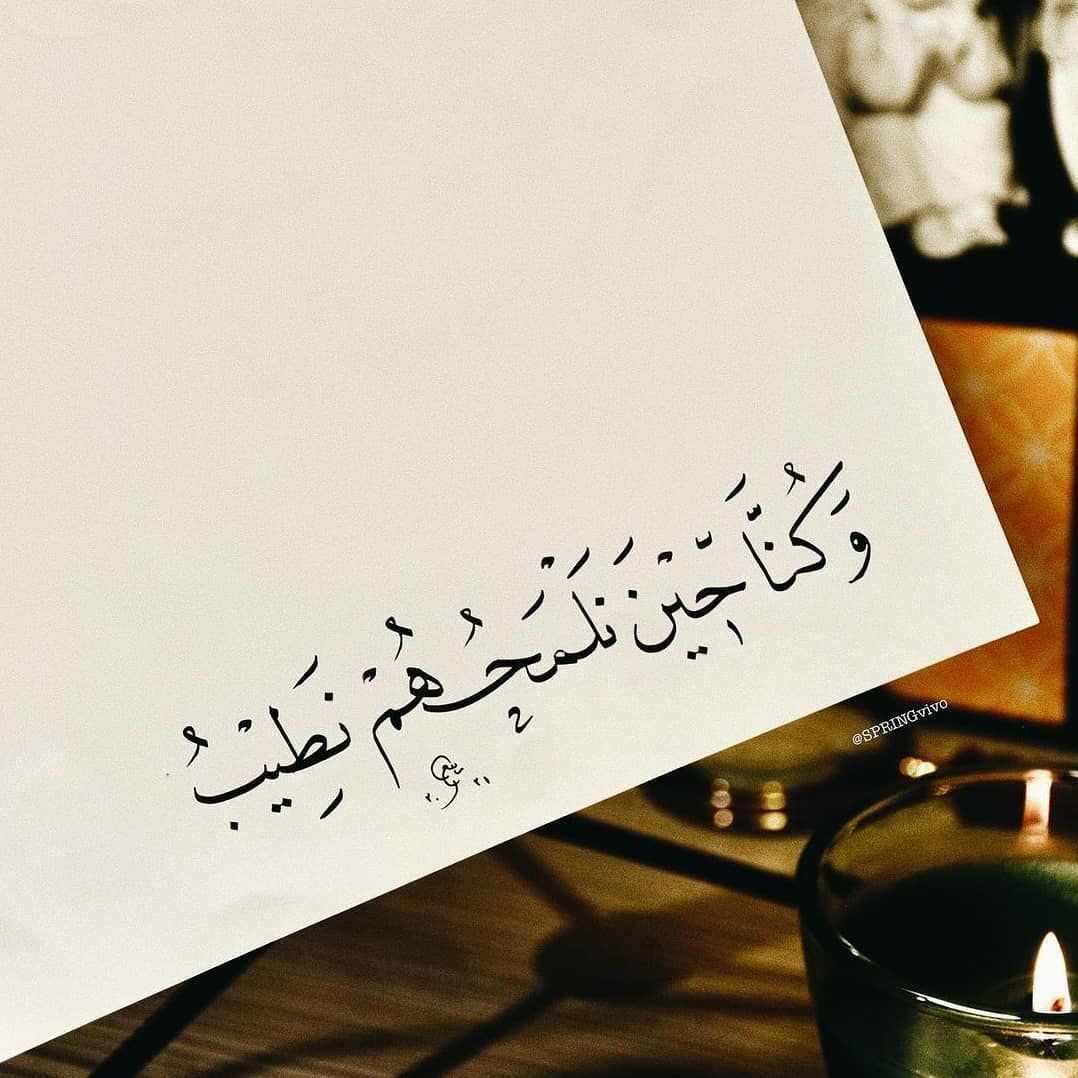 وَكُنَّا حِّيْنَ نَلْمَحُهُمْ نَطِيْبُ
@SPRINGvivo